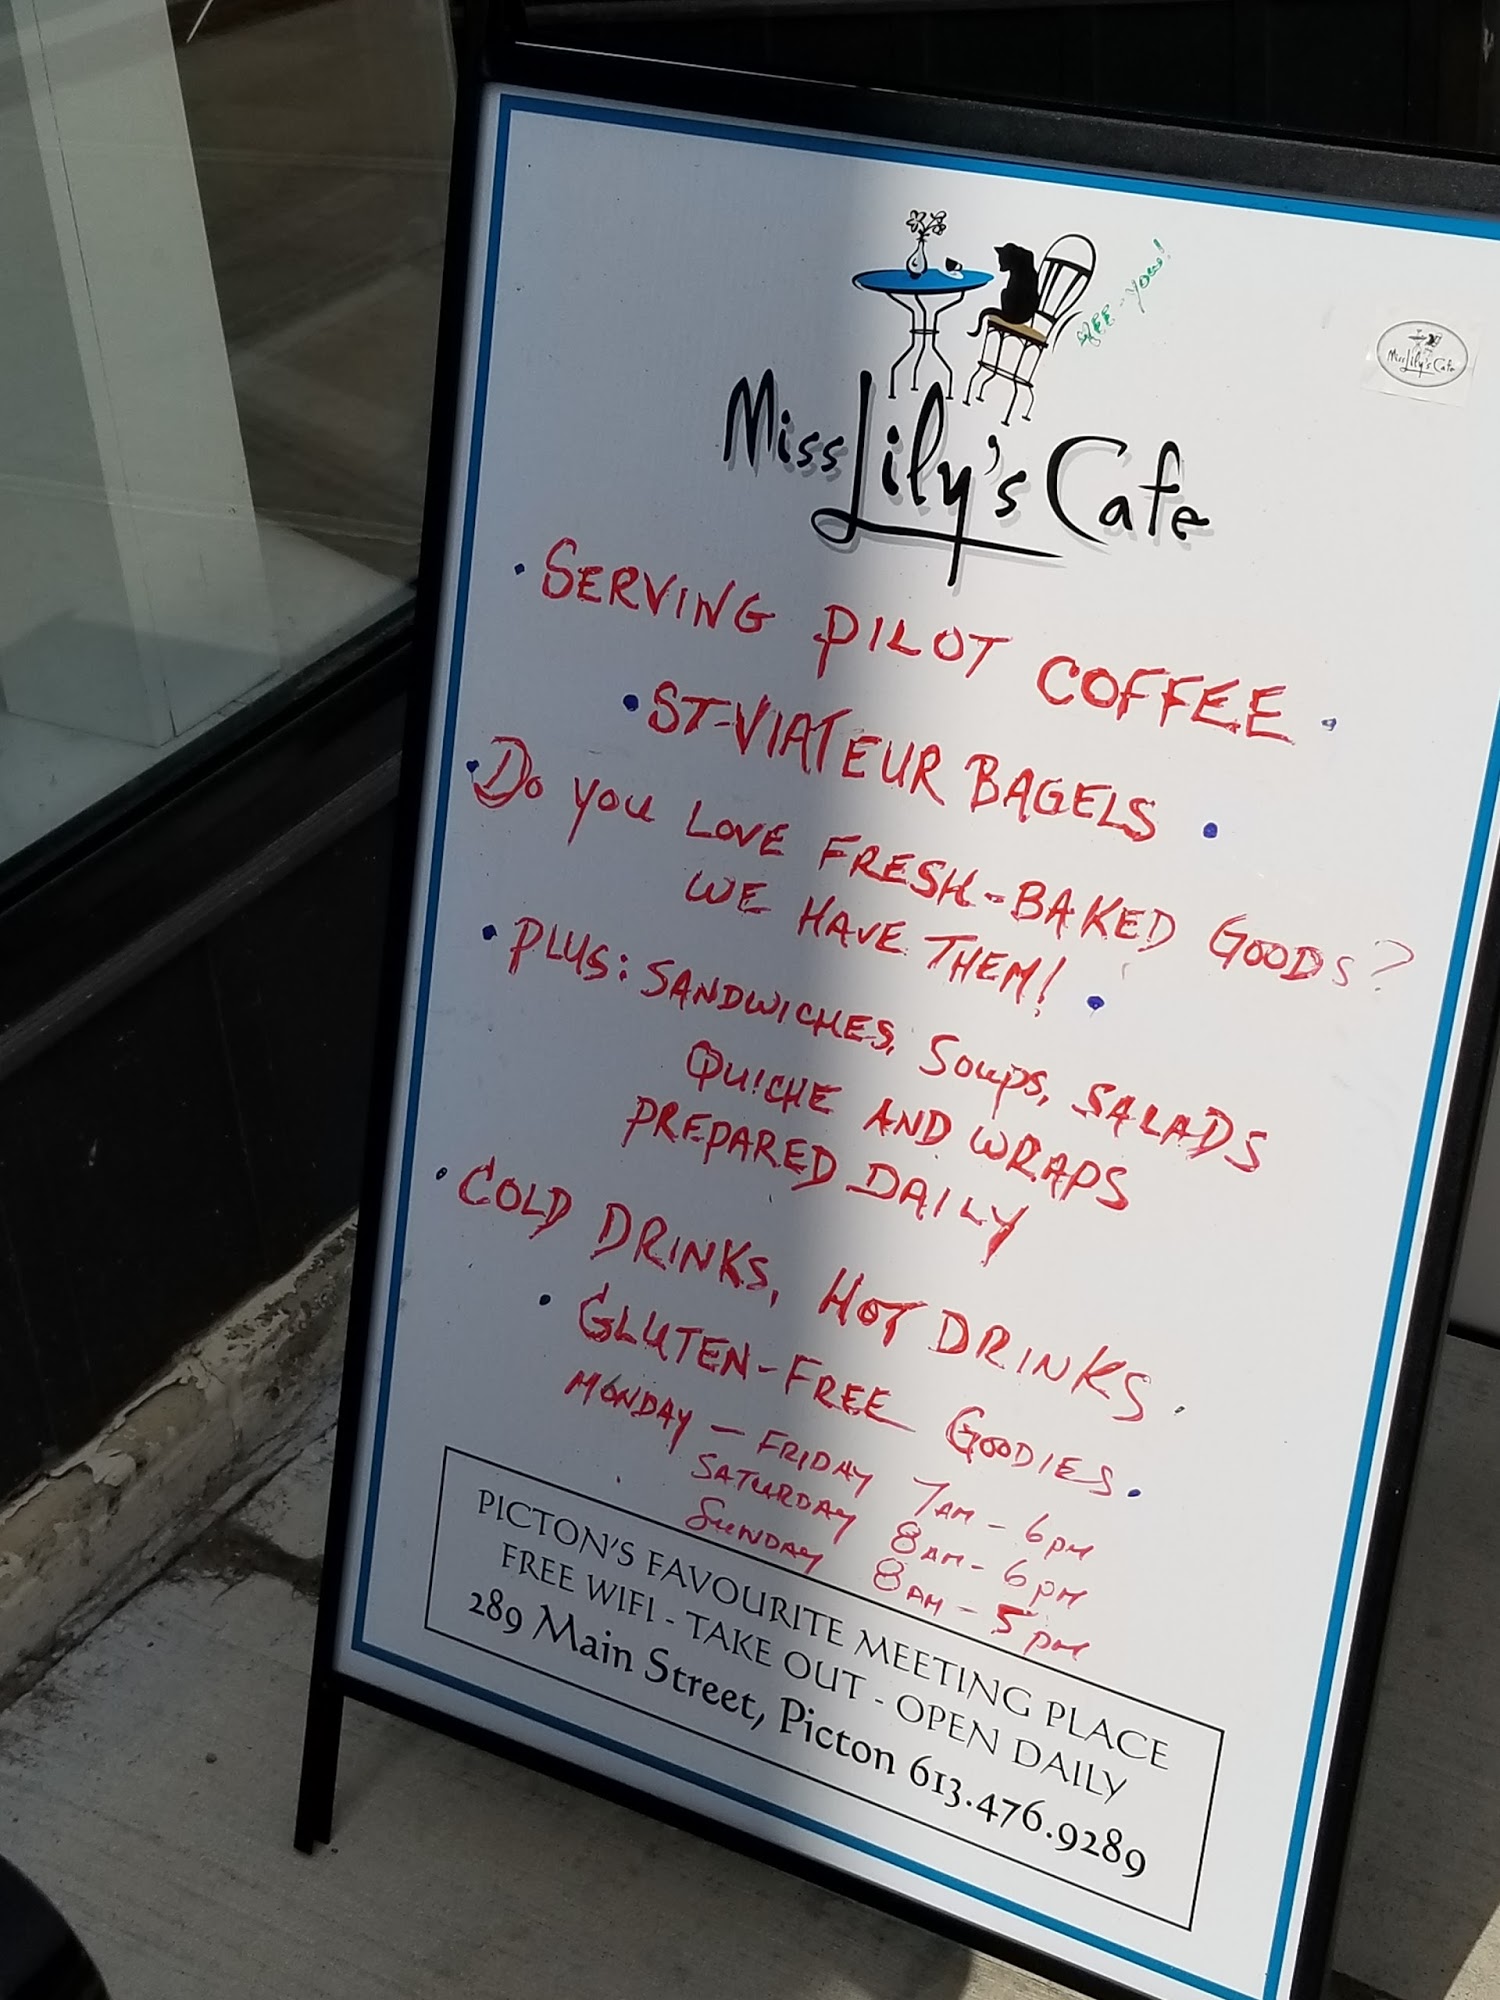 Miss Lily's Cafe
Miss Lily's Cafe
• SERVING PILOT COFFEE •
• ST-VIATEUR BAGELS •
• Do you LOVE FRESH-BAKED GOODS?
WE HAVE THEM! •
• PLUS: SANDWICHES, Soups, SALADS
QUICHE AND WRAPS
PREPARED DAILY
• COLD DRINKS, HOT DRINKS •
• GLUTEN-FREE GOODIES •
MONDAY - FRIDAY 7AM - 6pm
SATURDAY 8AM - 6pm
SUNDAY 8AM - 5pm
PICTON'S FAVOURITE MEETING PLACE
FREE WIFI - TAKE OUT - OPEN DAILY
289 Main Street, Picton 613.476.9289